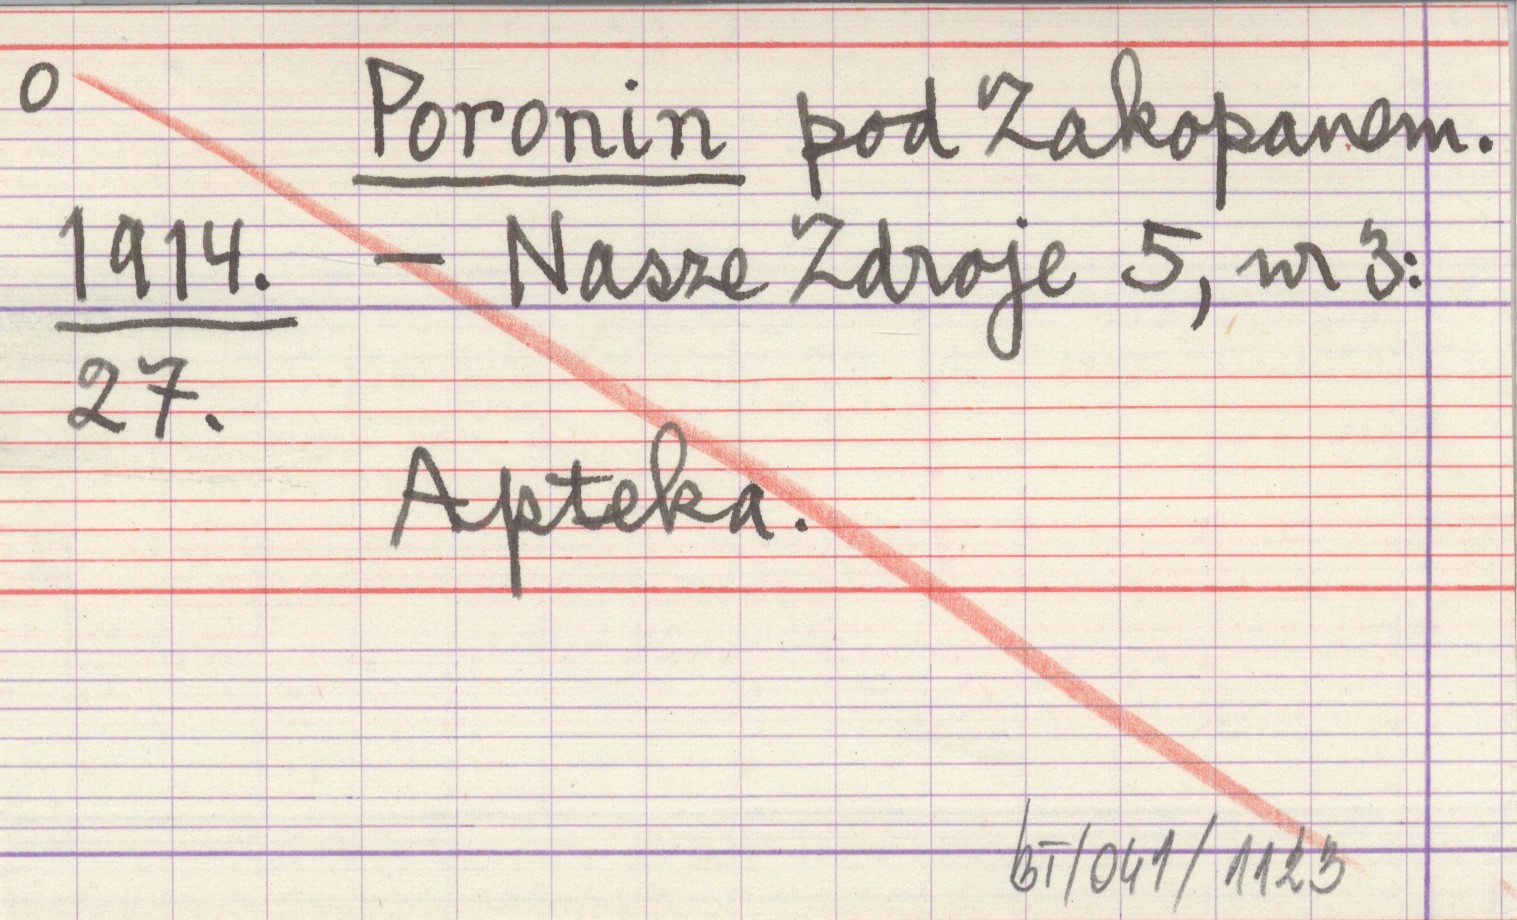 O Poronin pod Zakopanem.
1914. – Nasze Zdroje 5, nr 3:
27.
Apteka.
bT/041/1123